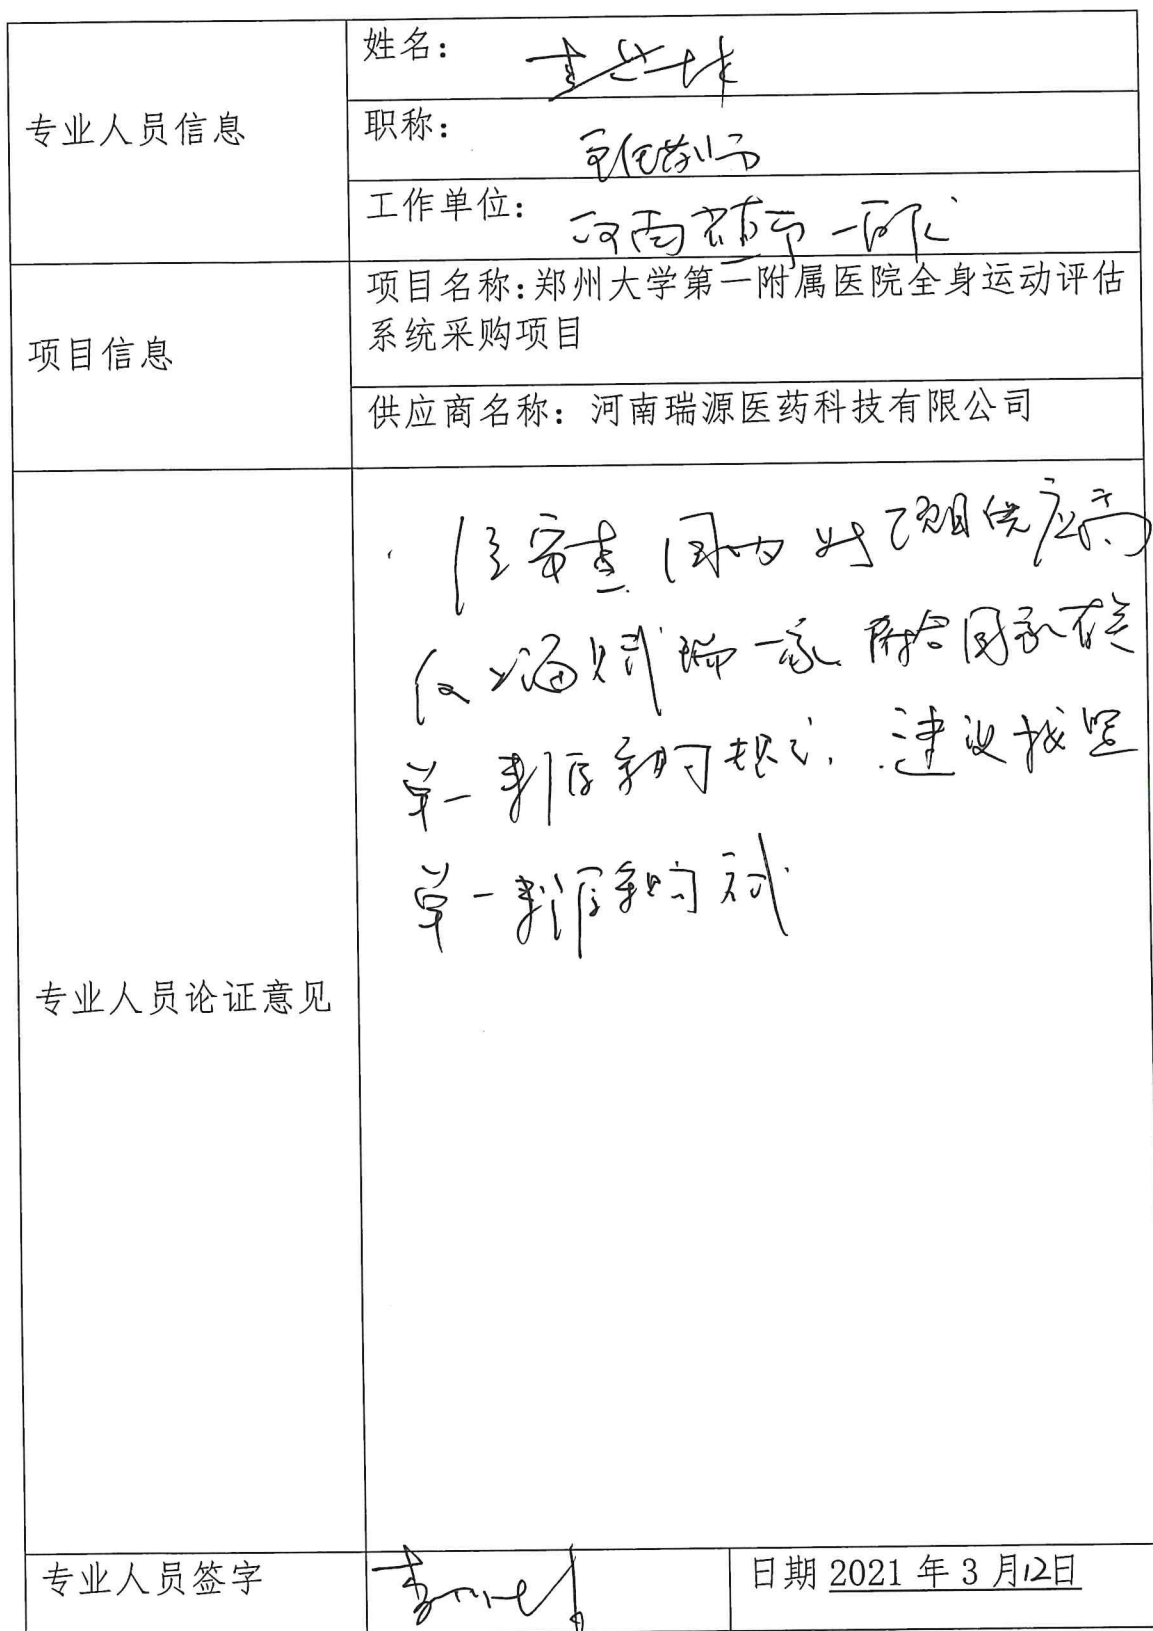 专业人员信息
姓名:
职称: 主任药师
工作单位:
项目信息
项目名称:郑州大学第一附属医院全身运动评估
系统采购项目
供应商名称: 河南瑞源医药科技有限公司
专业人员论证意见
经审查 国内 对 项目供应商
仅 一家 符合国家有关
单一来源采购规定, 建议按照
单一来源采购
专业人员签字
日期 2021 年 3 月12日